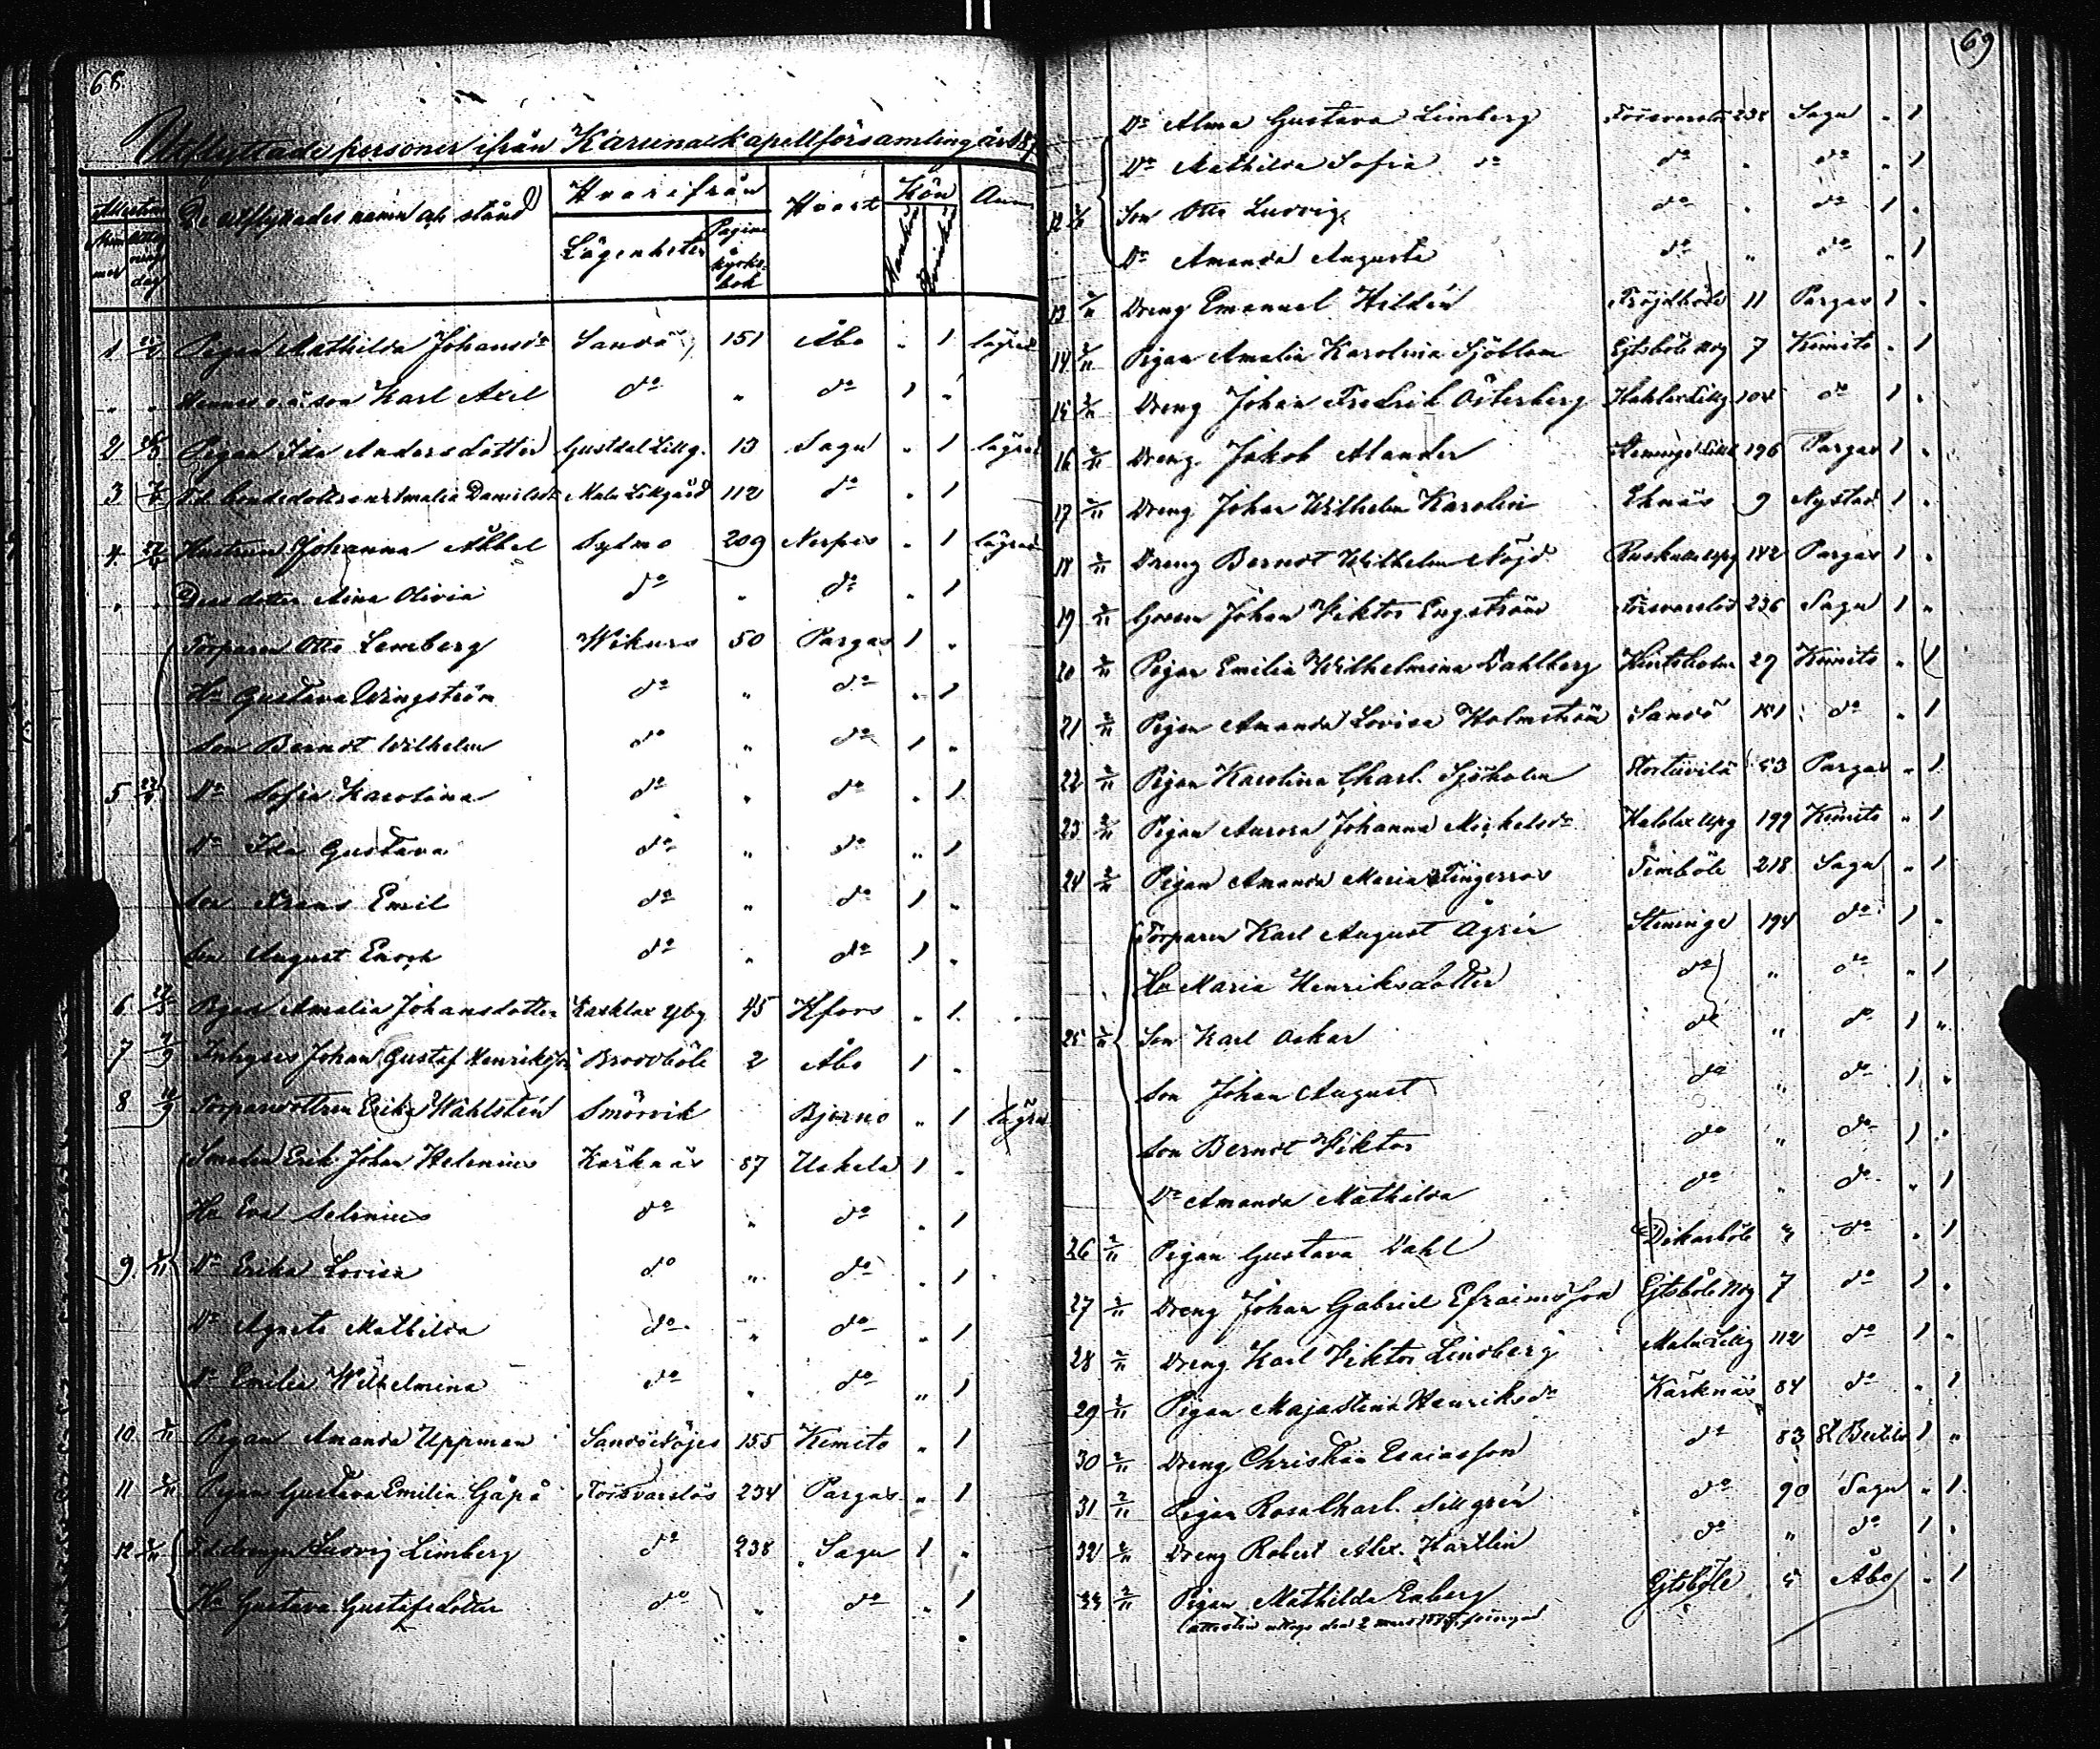 68.
Utflyttade personer ifrån Karuna kapellförsamling år 187
De utflyttades namn och stånd Hvarifrån Hvart Kön Anm
Nummer dag Lägenheter Pagina kyrkobok Mankön Qvinkön
1 Pigan Mathilda Johansdr Sandö 151 Åbo " 1 lägrad
" " Hennes o.ä. son Karl Axel do " do 1 "
2 Pigan Ida Andersdotter Gustdal Lillg. 13 Sagu " 1 lägrad
3 Amalia Danielsdr Malu Lillgård 112 do " 1
4. Hustrun Johanna Åkbel Sydmo 209 Nerpes " 1 lägrad
" " Dess dotter Aina Olivia do " do " 1
Torparen Otto Lemberg Wikurs 50 Pargas 1 "
Hu Gustava Wingström do " do " 1
Son Berndt Wilhelm do " do 1 "
5 Dr Sofia Karolina do " do " 1
Dr Ida Gustava do " do " 1
Son Frans Emil do " do 1 "
Son August Enoch do " do 1 "
6 Pigan Amalia Johansdotter 45 Hfors " 1
7 2/9 Inhyses Johan Gustaf Henriksson Broobböle 2 Åbo 1 "
8 11/9 Torparedottren Erika Wahlstén Smörvik Bjerno " 1 lägrad
Smeden Erik Johan Helenius Karknäs 87 Uskela 1 "
Hu Eva Selenius do " do " 1
9. Dr Erika Lovisa do " do " 1
Dr Agneta Mathilda do " do " 1
Dr Emilia Wilhelmina do " do " 1
10 2/11 Pigan Amanda Uppman Sandö 155 Kimito " 1
11 2/11 Pigan Gustava Emilia Gåpå Försvarslös 234 Pargas " 1
12 2/11 F.d. drengen Ludvig Limberg do 238 Sagu 1 "
Hu Gustava Gustafsdotter do " do " 1
69
Dr Alma Gustava Limberg Försvarslös 238 Sagu " 1
Dr Mathilda Sofia do do " do " 1
12 2/11 Son Otto Ludvig do " do 1 "
Dr Amanda Augusta do " do " 1
13 2/11 Dreng Emanuel Hildén Fröjdböle 11 Pargas 1 "
14 2/11 Pigan Amalia Karolina Sjöblom Ejtsböle Nog 7 Kimito " 1
15 2/11 Dreng Johan Fredrik Österberg 104 do 1 "
16 2/11 Dreng Jakob Alander 196 Pargas 1 "
17 2/11 Dreng Johan Wilhelm Karolin Eknäs 9 Nystad 1 "
18 2/11 Dreng Berndt Wilhelm Nöjd 142 Pargas 1 "
19 2/11 Johan Viktor Engström Försvarslös 236 Sagu 1 "
20 2/11 Pigan Emilia Wilhelmina Dahlberg 29 Kimito " 1
21 2/11 Pigan Amanda Lovisa Holmström Sandö 151 do " 1
22 2/11 Pigan Karolina Charl. Sjöholm 53 Pargas " 1
23 2/11 Pigan Aurora Johanna Mickelsdr 199 Kimito " 1
24 2/11 Pigan Amanda Maria Fingerroos Timböle 218 Sagu " 1
Torparen Karl August Ågrén Steninge 194 do 1 "
Hu Maria Henriksdotter do " do " 1
25 2/11 Son Karl Oskar do " do 1 "
Son Johan August do " do 1 "
Son Berndt Viktor do " do 1 "
Dr Amanda Mathilda do " do " 1
26 2/11 Pigan Gustava Dahl Dikarböle " do " 1
27 2/11 Dreng Johan Gabriel Efraimsson Ejtsböle Nog 7 do 1 "
28 2/11 Dreng Karl Viktor Lindberg Malu Lillg 112 do 1 "
29 2/11 Pigan Maja Stina Henriksdr Karknäs 84 do " 1
30 2/11 Dreng Christian Esaiasson do 83 1 "
31 2/11 Pigan Rosa Charl. Sillgrén do 90 Sagu " 1
32 2/11 Dreng Robert Alex. Kartlin do " do 1 "
33 2/11 Pigan Mathilda Enberg Ejtsböle 5 Åbo " 1